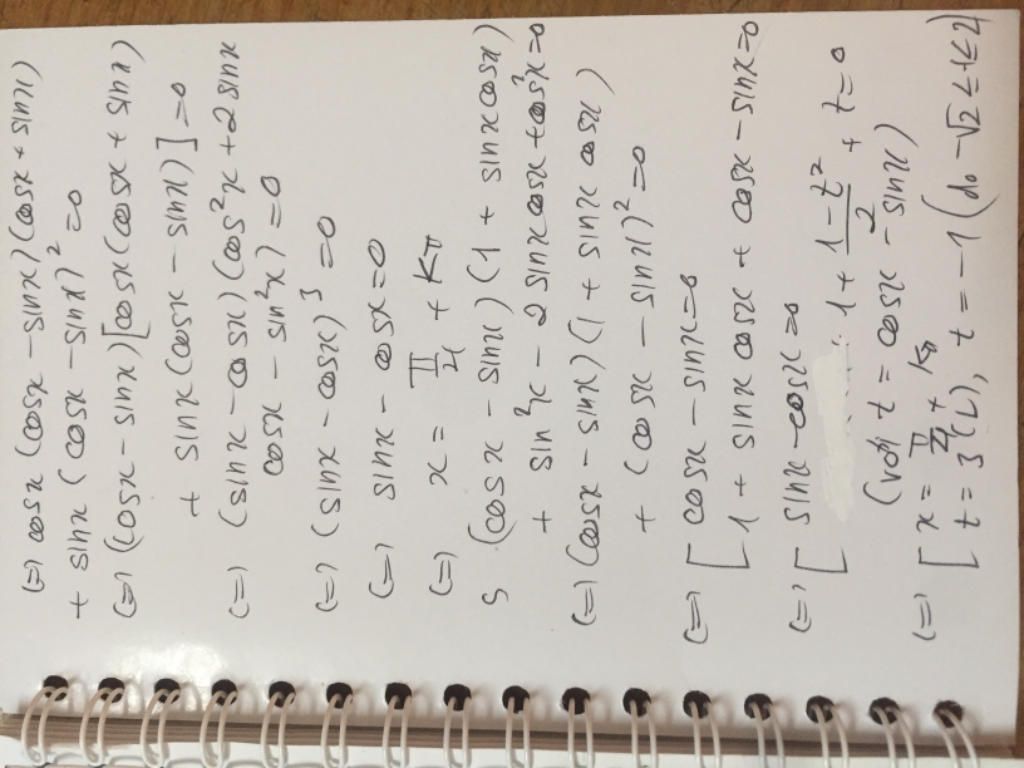 (=) cosx (cosx - sinx)(cosx + sinx)
+ sinx (cosx - sinx)² = 0
(=) (cosx - sinx)[cosx(cosx + sinx)
+ sinx(cosx - sinx)] = 0
(=) (sinx - cosx)(cos²x + 2sinx
cosx - sin²x) = 0
(=) (sinx - cosx)³ = 0
(=) sinx - cosx = 0
(=) x = π/4 + kπ
5 (cosx - sinx)(1 + sinxcosx)
+ sin²x - 2sinxcosx + cos²x = 0
(=) (cosx - sinx)(1 + sinx cosx)
+ (cosx - sinx)² = 0
(=) [ cosx - sinx = 0
1 + sinx cosx + cosx - sinx = 0
(=) [ sinx - cosx = 0
1 + (1 - t²)/2 + t = 0
(với t = cosx - sinx)
(=) [ x = π/4 + kπ
t = 3 (L), t = -1 (do -√2 ≤ t ≤ √2)